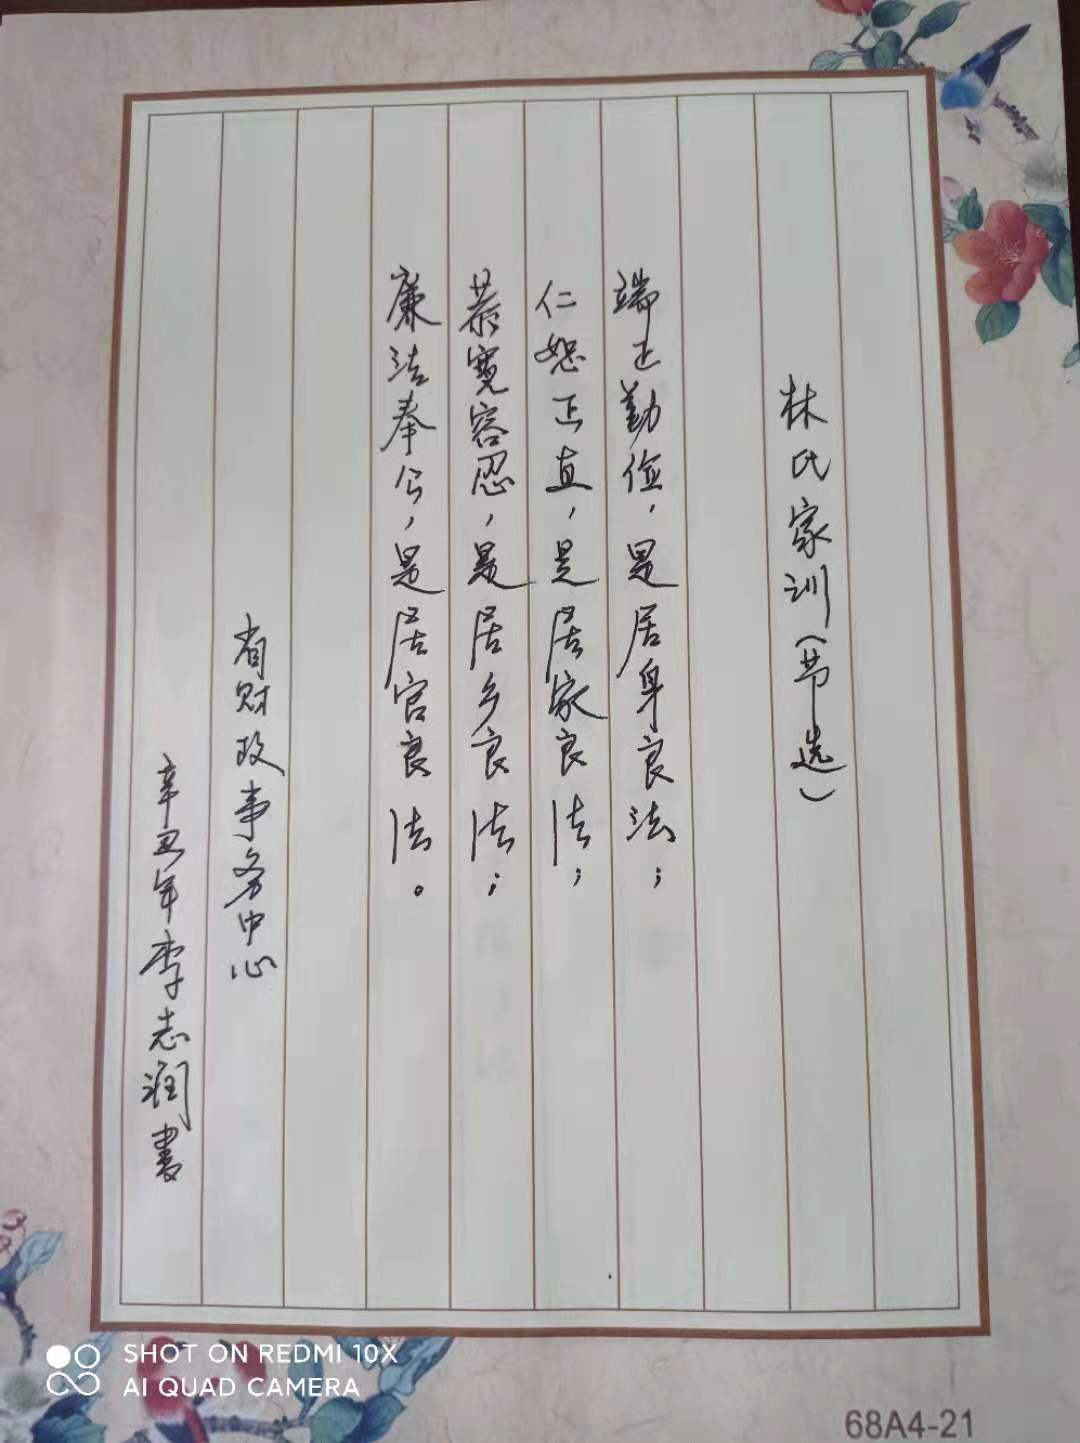 林氏家训（节选）
端正勤俭，是居身良法；
仁恕正直，是居家良法；
恭宽容忍，是居乡良法；
廉法奉公，是居官良法。
省财政事务中心
辛丑年李志润书
SHOT ON REDMI 10X
AI QUAD CAMERA
68A4-21